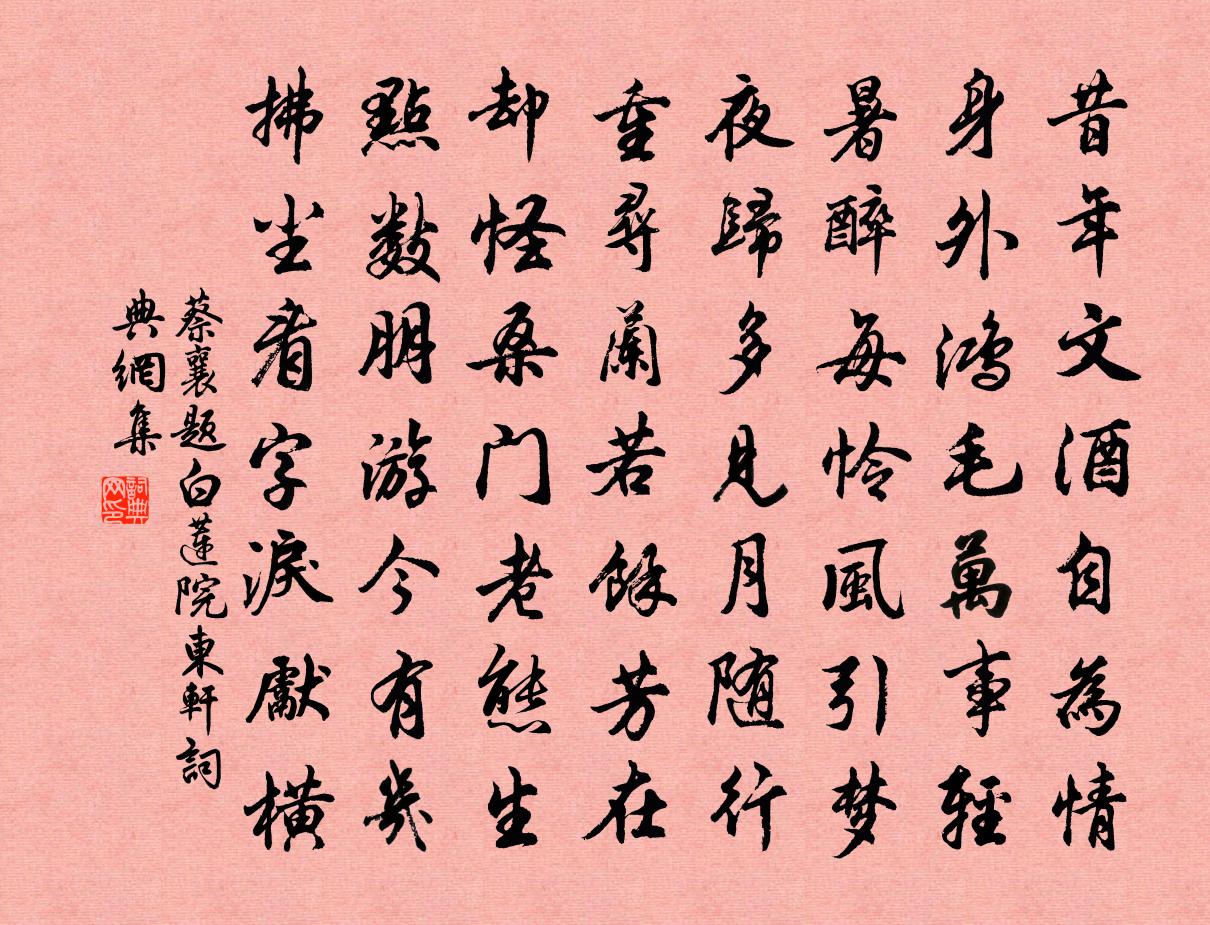 昔年文酒自為情
身外鴻毛萬事輕
暑醉每怜風引梦
夜歸多見月随行
重尋蘭若餘芳在
却怪桑门老態生
點数朋游今有幾
拂尘看字淚獻橫
蔡襄题白蓮院東軒詞
典網集
詞典
网印